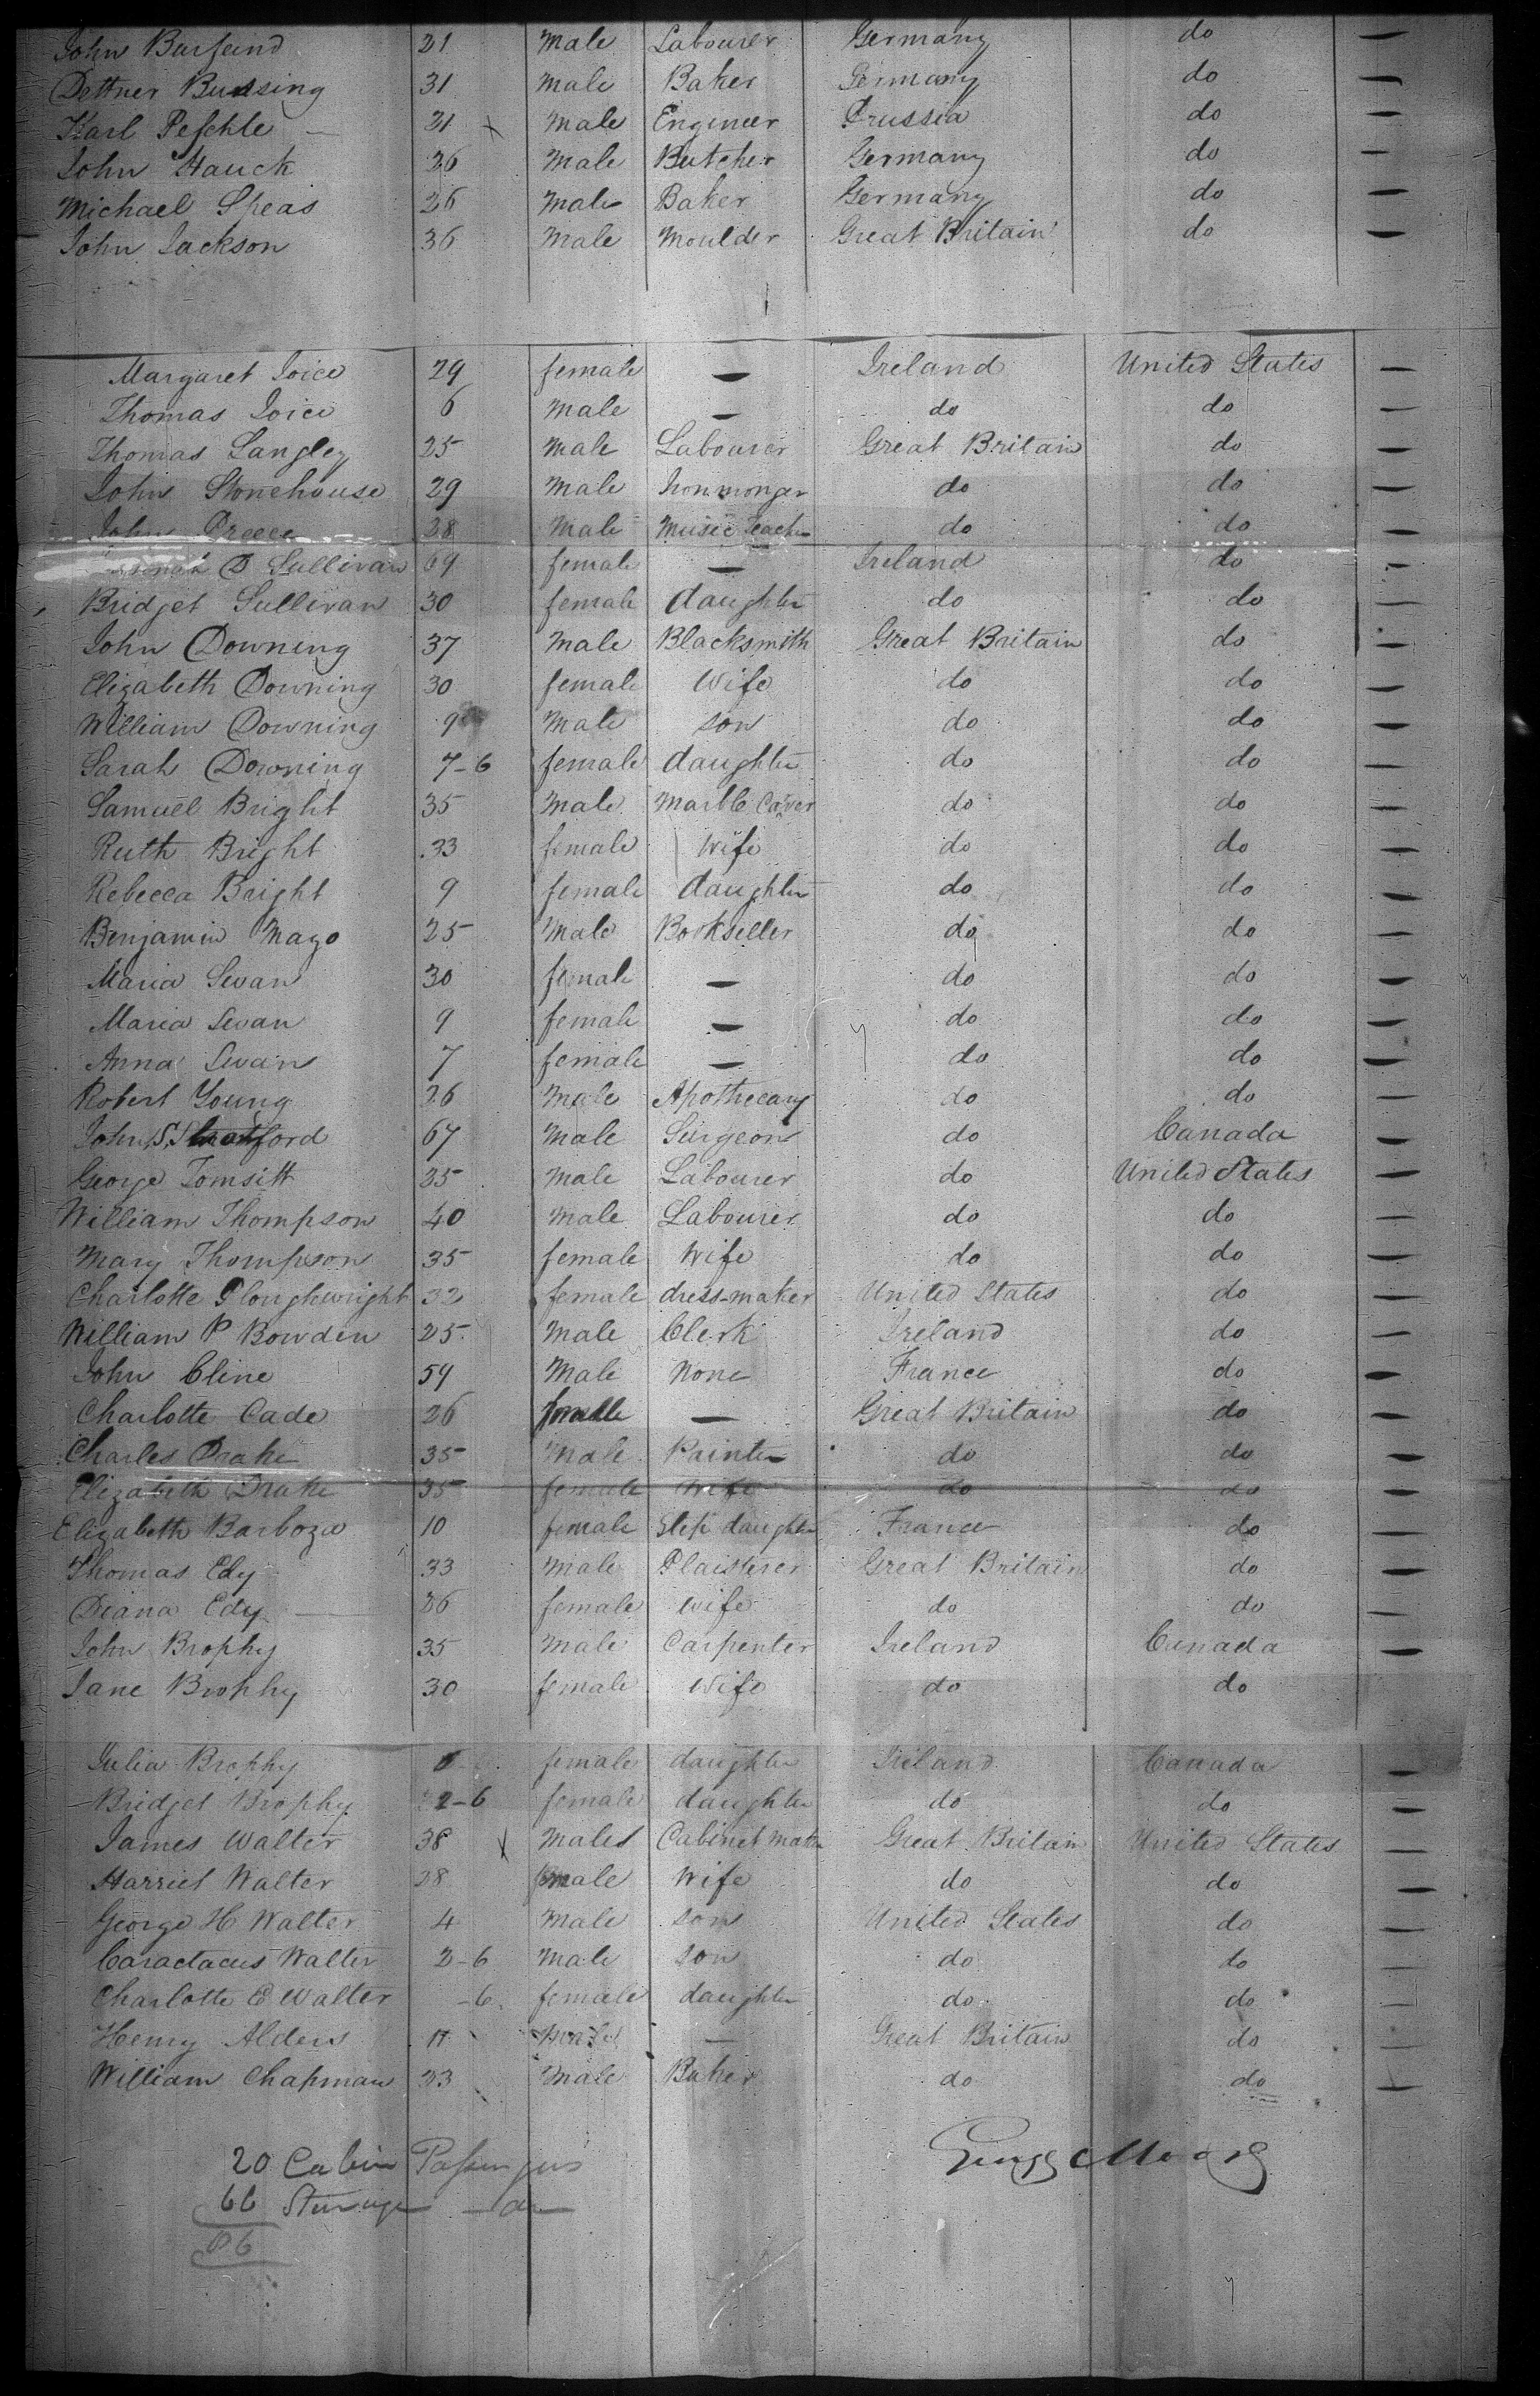 John Burfeind 21 Male Labourer Germany do —
Dettner Bussing 31 Male Baker Germany do —
Karl Peschle — 21 x Male Engineer Prussia do —
John Hauck 26 Male Butcher Germany do —
Michael Speas 26 Male Baker Germany do —
John Jackson 36 Male Moulder Great Britain do —
Margaret Joice 29 female — Ireland United States —
Thomas Joice 6 Male — do do —
Thomas Langley 25 Male Labourer Great Britain do —
John Stonehouse 29 Male Ironmonger do do —
John Preece 28 Male Music Teacher do do —
O Sullivan 69 female — Ireland do —
Bridget Sullivan 30 female daughter do do —
John Downing 37 Male Blacksmith Great Britain do —
Elizabeth Downing 30 female Wife do do —
William Downing 9 Male son do do —
Sarah Downing 7-6 female daughter do do —
Samuel Bright 35 Male Marble Carver do do —
Ruth Bright 33 female Wife do do —
Rebecca Bright 9 female daughter do do —
Benjamin Mayo 25 Male Bookseller do do —
Maria Swan 30 female — do do —
Maria Swan 9 female — do do —
Anna Swan 7 female — do do —
Robert Young 26 Male Apothecary do do —
John S. 67 Male Surgeon do Canada —
George Tomsitt 35 Male Labourer do United States —
William Thompson 40 Male Labourer do do —
Mary Thompson 35 female Wife do do —
Charlotte Ploughwright 32 female dress-maker United States do —
William P Bowden 25 Male Clerk Ireland do —
John Cline 59 Male None France do —
Charlotte Cade 26 female — Great Britain do —
Charles Drake 35 Male Painter do do —
Elizabeth Drake 35 female Wife do do —
Elizabeth Barboza 10 female Step daughter France do —
Thomas Edy 33 Male Plaisterer Great Britain do —
Diana Edy — 26 female Wife do do —
John Brophy 35 Male Carpenter Ireland Canada —
Jane Brophy 30 female Wife do do
Julia Brophy female daughter Ireland Canada —
Bridget Brophy 2-6 female daughter do do —
James Walter 38 x Male Cabinet Maker Great Britain United States —
Harriet Walter 28 female Wife do do —
George H Walter 4 Male son United States do —
Caractacus Walter 2-6 Male son do do —
Charlotte E Walter -6 female daughter do do —
Henry Alders 11 Male — Great Britain do —
William Chapman 23 Male Baker do do —
20 Cabin Passengers
66 Steerage — do
86